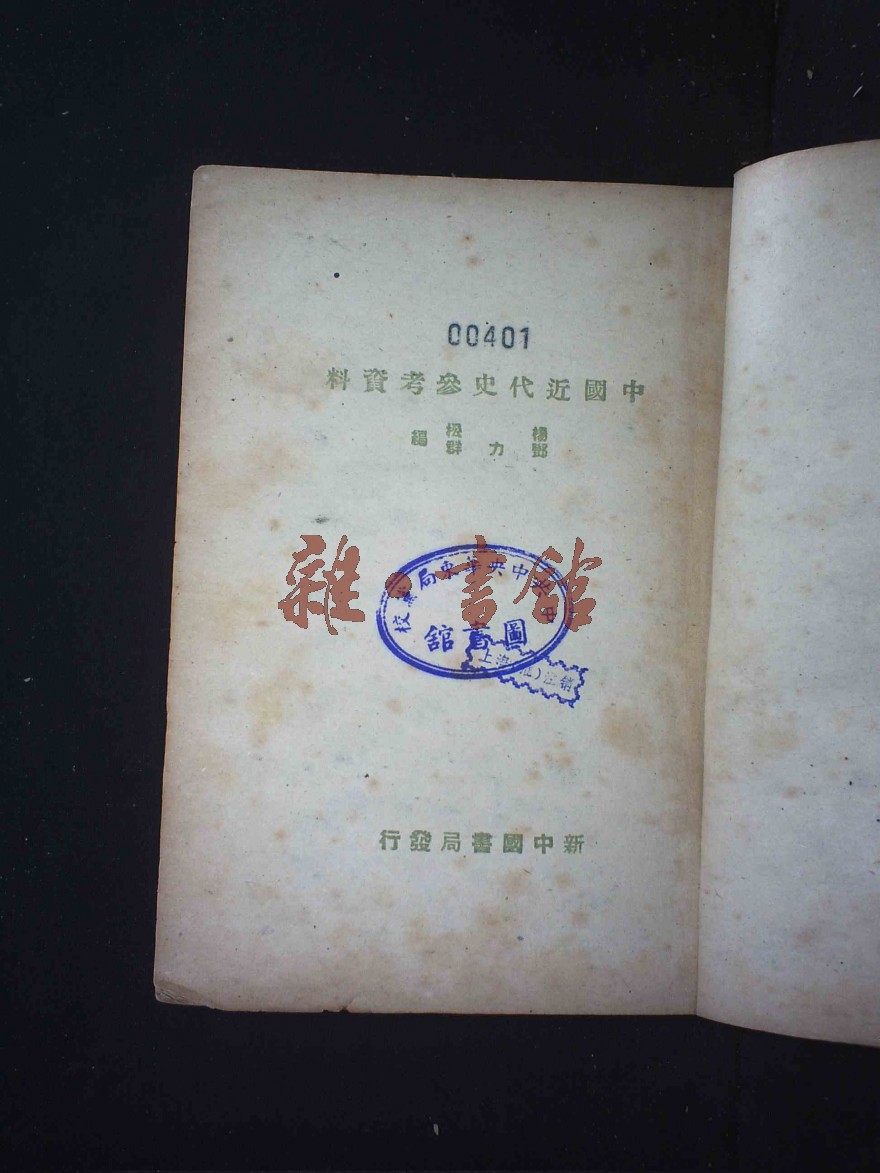 00401
中國近代史參考資料
楊 松
鄧力群 編
雜·書館
中共中央華東局黨校
圖書館
上海 注销
新中國書局發行